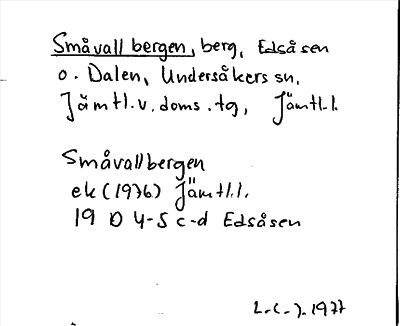 Småvallbergen, berg, Edsåsen
o. Dalen, Undersåkers sn,
Jämtl.v. doms.tg, Jämtl.l.
Småvallbergen
ek (1976) Jämtl.l.
19 D 4-5 c-d Edsåsen
1977